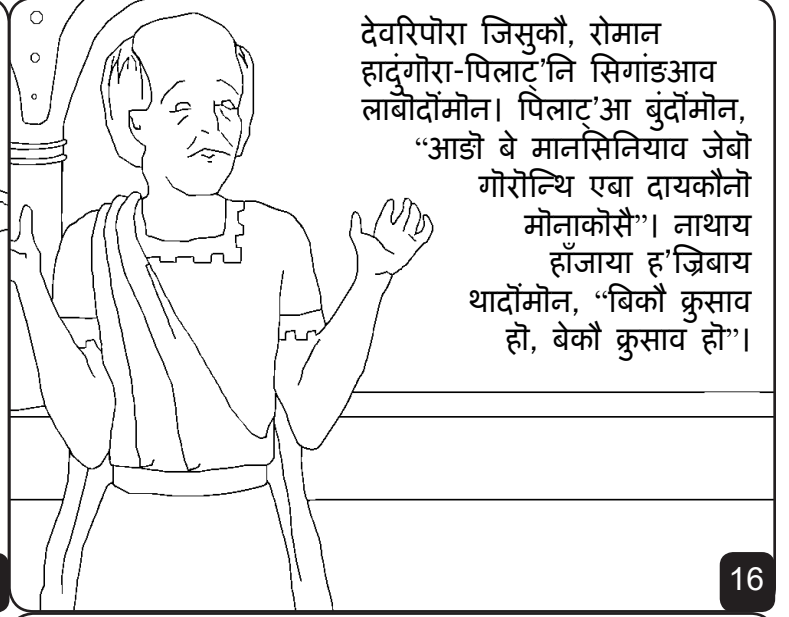 देवरिपॊरा जिसुकौ, रोमान
हादुंगॊरा-पिलाट्’नि सिगांङआव
लाबॊदोंमॊन। पिलाट्’आ बुंदोंमॊन,
“आङॊ बे मानसिनियाव जेबॊ
गॊरॊन्थि एबा दायकौनॊ
मॊनाकॊसै”। नाथाय
हाँजाया ह’ज्रिबाय
थादोंमॊन, “बिकौ क्रुसाव
हॊ, बेकौ क्रुसाव हॊ”।
16